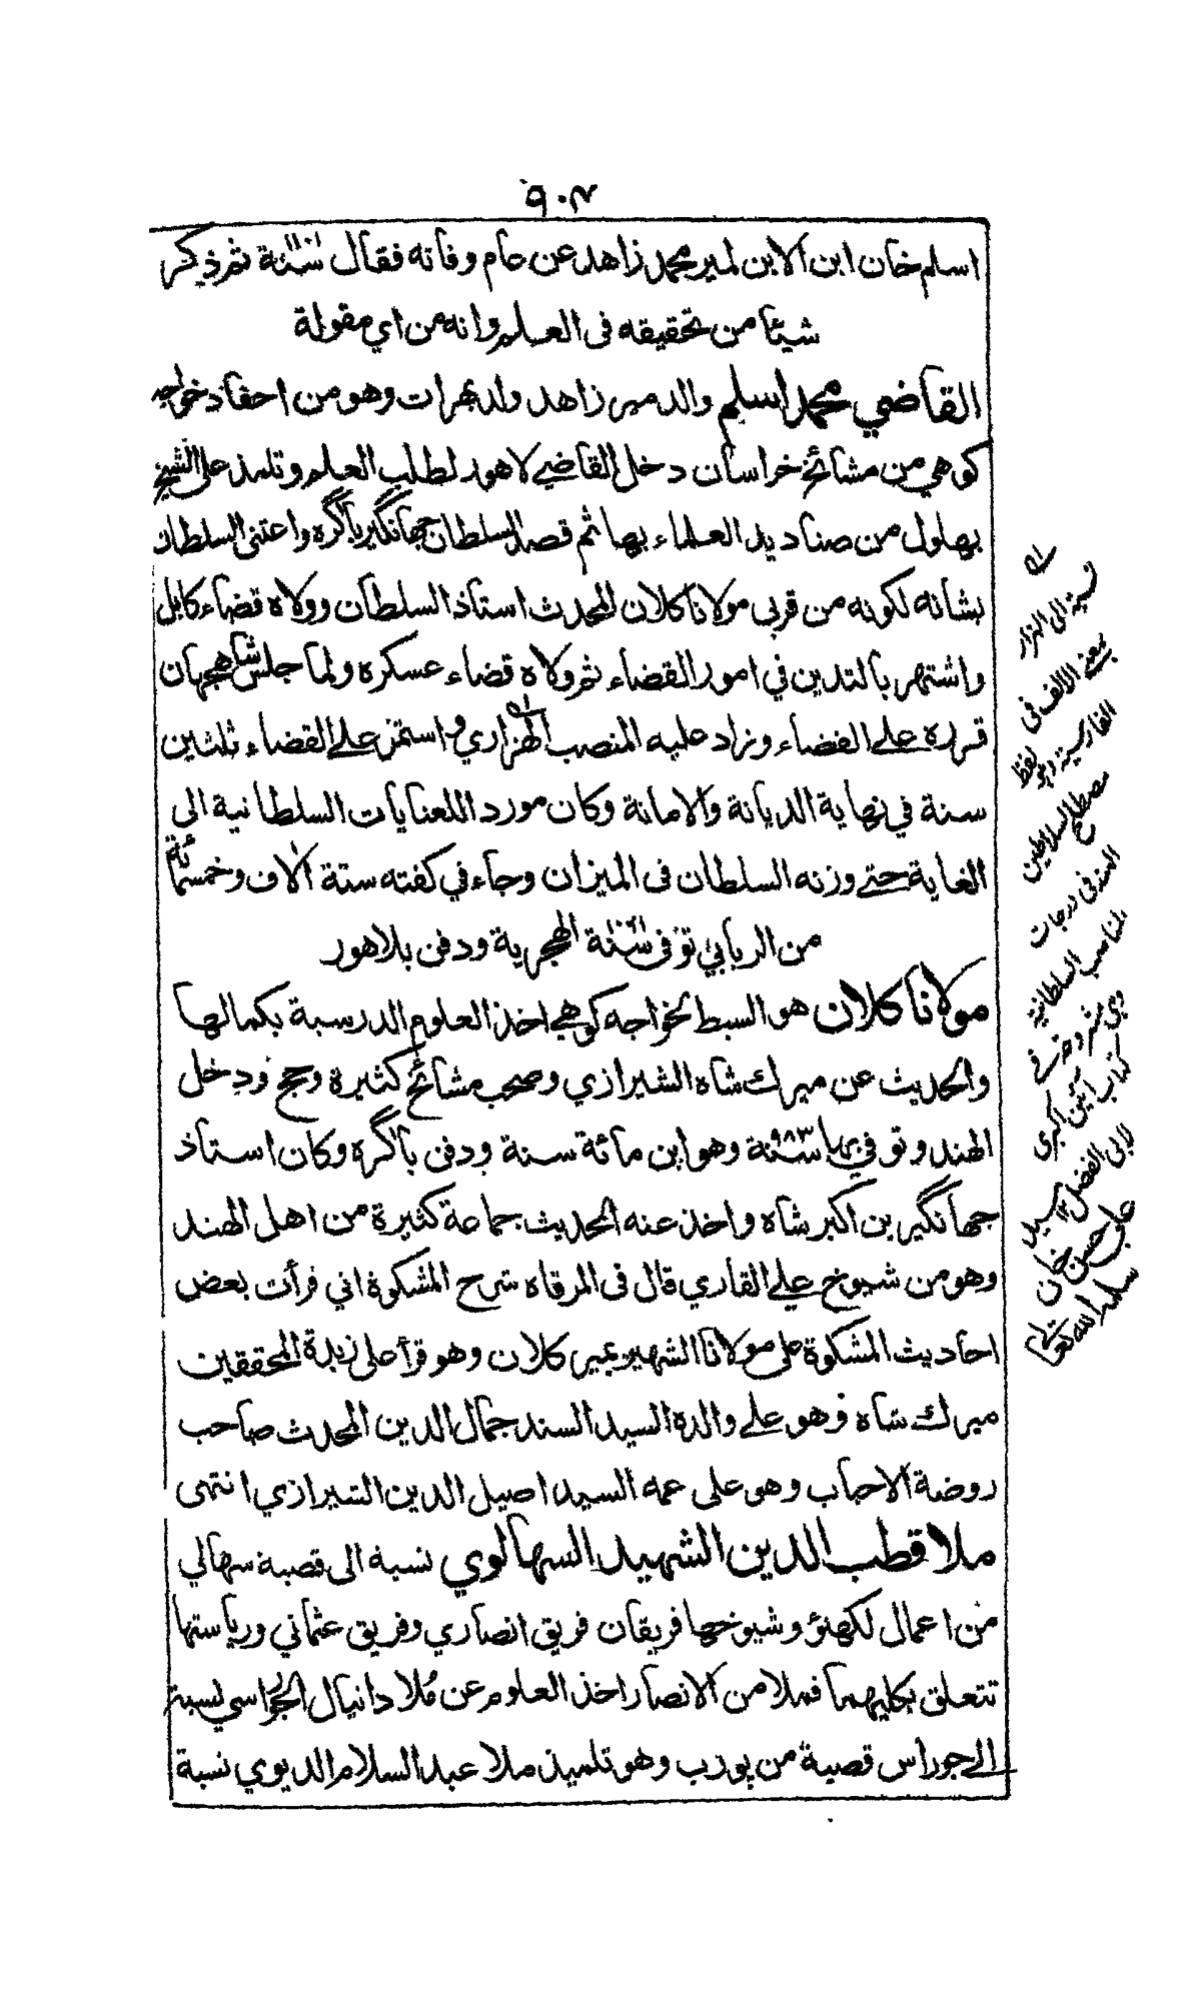 ٩٠٢
اسلم خان ابن الابن لمير محمد زاهد عن عام وفاته فقال سنة ثم ذكر
شيئا من تحقيقه فى العلم وانه من اي مقولة
القاضي محمد اسلم والد مير زاهد ولد بهرات وهو من احفاد خواجه
كوهي من مشائخ خراسان دخل القاضي لاهور لطلب العلم وتلمذ على الشيخ
بهلول من صناديد العلماء بها ثم قصد السلطان جهانگير بآگره واعتنى السلطان
بشانه لكونه من قربى مولانا كلان المحدث استاذ السلطان وولاه قضاء كابل
واشتهر بالتدين في امور القضاء ثم ولاه قضاء عسكره ولما جلس شاهجهان
قرره على القضاء وزاد عليه المنصب الهزاري واستمر على القضاء ثلثين
سنة في نهاية الديانة والامانة وكان مورد اللعنايات السلطانية الى
الغاية حتے وزنه السلطان فى الميزان وجاء في كفته ستة آلاف وخمسمائة
من الربابي توفى سنة الهجرية ودفن بلاهور
مولانا كلان هو السبط لخواجه كوهي اخذ العلوم الدرسية بكمالها
والحديث عن ميرك شاه الشيرازي وصحب مشائخ كثيرة وحج ودخل
الهند وتوفي بها سنة ٩٨٣ وهو ابن مائة سنة ودفن بآگره وكان استاذ
جهانگير بن اكبر شاه واخذ عنه الحديث جماعة كثيرة من اهل الهند
وهو من شيوخ علي القاري قال فى المرقاه شرح المشكوة اني قرأت بعض
احاديث المشكوة على مولانا الشهير بمير كلان وهو قرأ على زبدة المحققين
ميرك شاه وهو على والده السيد السند جمال الدين المحدث صاحب
روضة الاحباب وهو على عمه السيد اصيل الدين الشيرازي انتهى
ملا قطب الدين الشهيد السهالوي نسبة الى قصبة سهالي
من اعمال لكهنؤ وشيوخها فريقان فريق انصاري وفريق عثماني ورياستها
تتعلق بكليهما فملا من الانصار اخذ العلوم عن مُلا دانيال الجوراسي نسبة
الى جوراس قصبة من پورب وهو تلميذ ملا عبد السلام الديوي نسبة
نسبة الى الهزار
بمعنى الالف فى
الفارسية وهو لفظ
مصطلح السلاطين
الهند فى درجات
المناصب السلطانية
وهى مشروحة فى
كتاب آئين اكبرى
لابى الفضل السيد
على حسن خان
سلمه الله تعالى